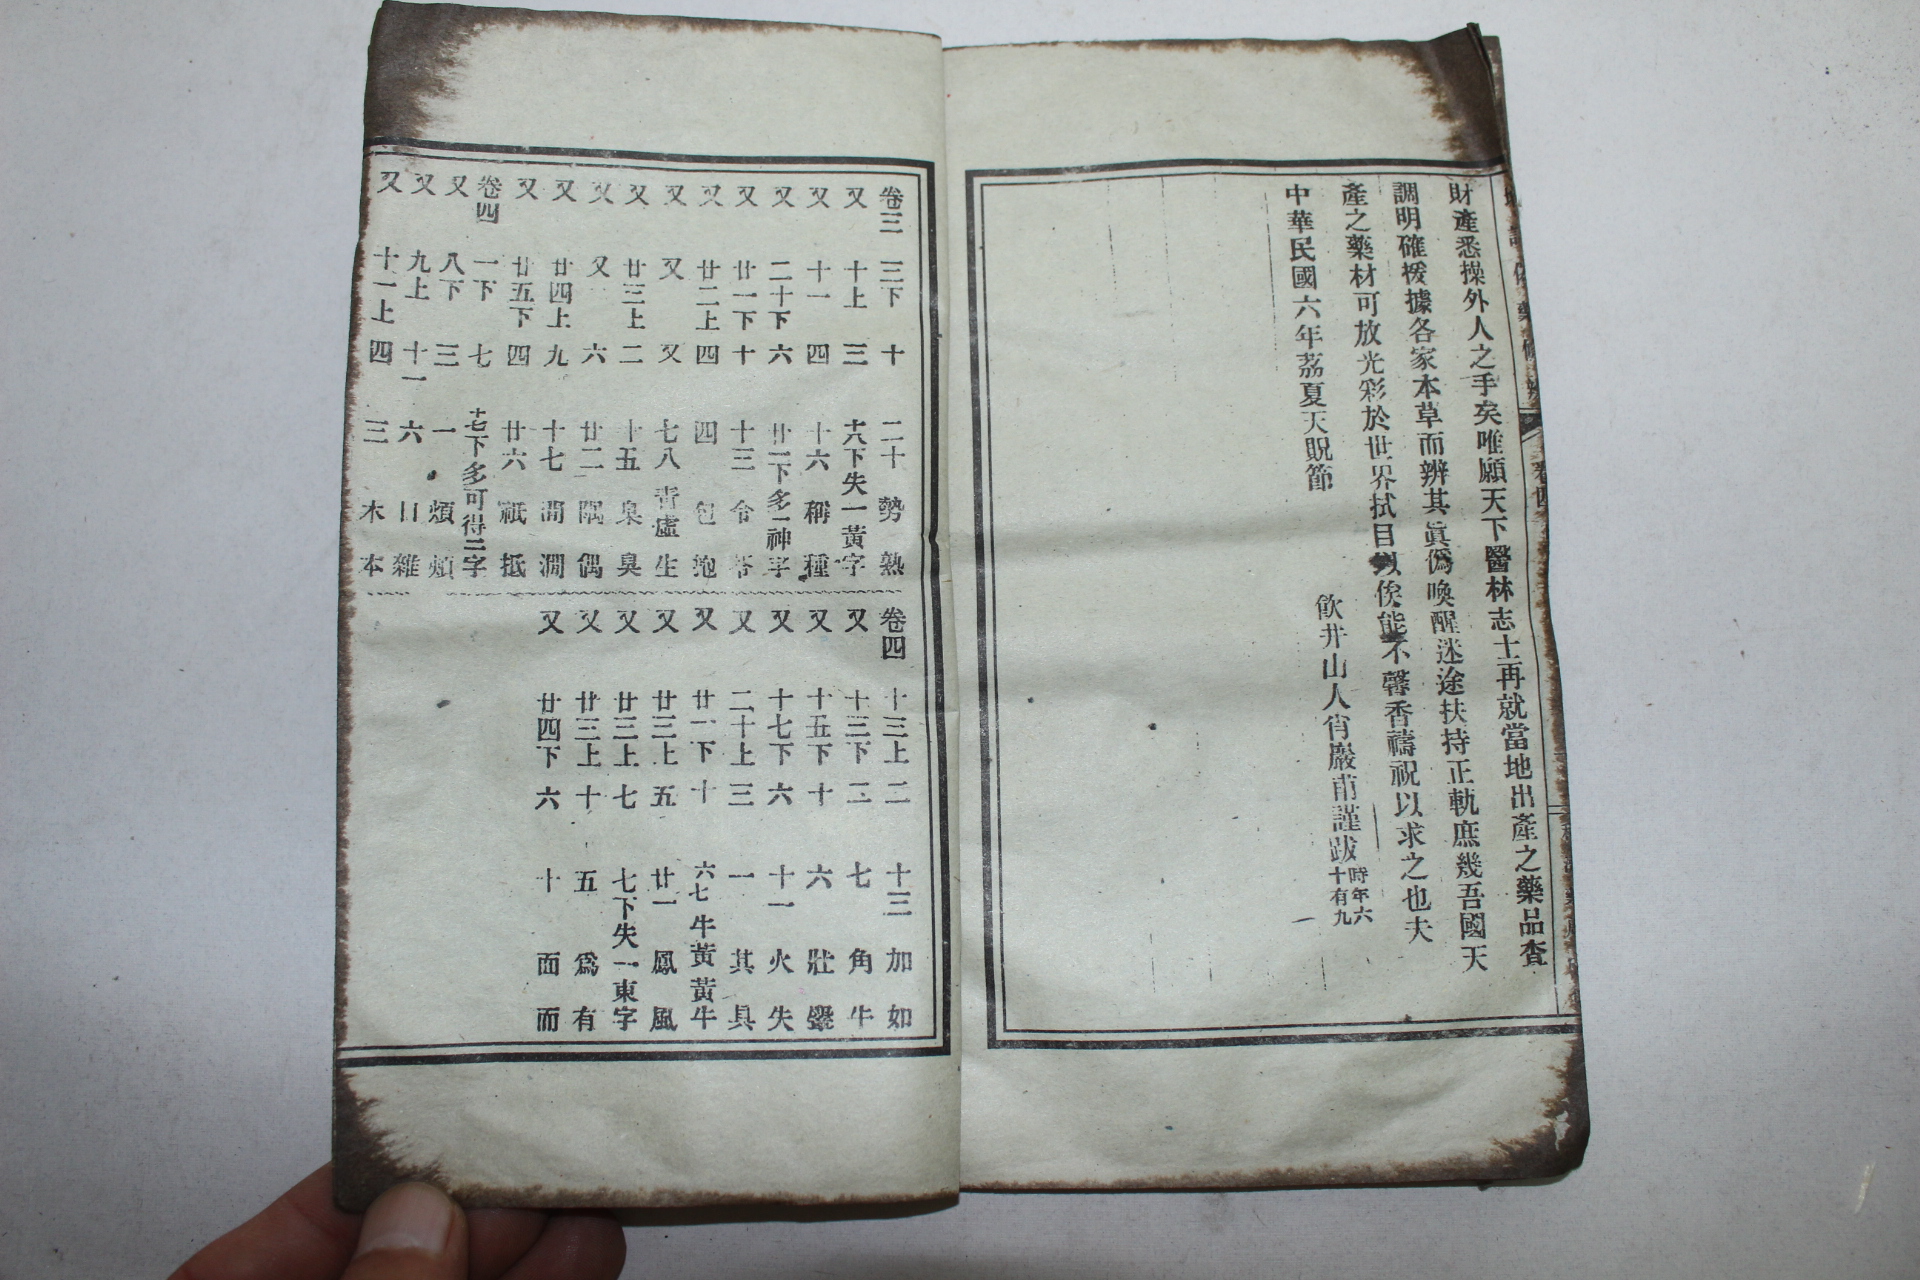 財產悉操外人之手矣唯願天下醫林志士再就當地出產之藥品查
調明確援據各家本草而辨其眞僞喚醒迷途扶持正軌庶幾吾國天
產之藥材可放光彩於世界拭目以俟能不馨香禱祝以求之也夫
中華民國六年荔夏天貺節
飮井山人肖巖甫謹跋時年六十有九
一
卷四
卷三 三下 十 二十 勢 熟
又 十上 三 十八下失一黃字
又 十一 四 十六 稱 種
又 二十下 六 廿一下多一神字
又 廿一下 十 十三 令 苓
又 廿二上 四 四 包 炮
又 又 又 七八 靑虛 生
又 廿三上 二 十五 臬 臭
又 又 六 廿二 隅 偶
又 廿四上 九 十七 間 澗
又 廿五下 四 廿六 祇 抵
卷四 一下 七 十七下多可得二字
又 八下 三 一 煩 頰
又 九上 十一 六 日 雜
又 十一上 四 三 木 本
卷四 十三上 二 十三 加 如
又 十三下 二 七 角 牛
又 十五下 十 六 壯
又 十七下 六 十一 火 失
又 二十上 三 一 其 具
又 廿一下 十 六七 牛黃 黃牛
又 廿三上 五 廿一 鳳 風
又 廿三上 七 七下失一東字
又 廿三上 十 五 爲 有
又 廿四下 六 十 面 而